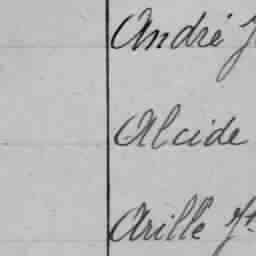 André
Alcide
Arille